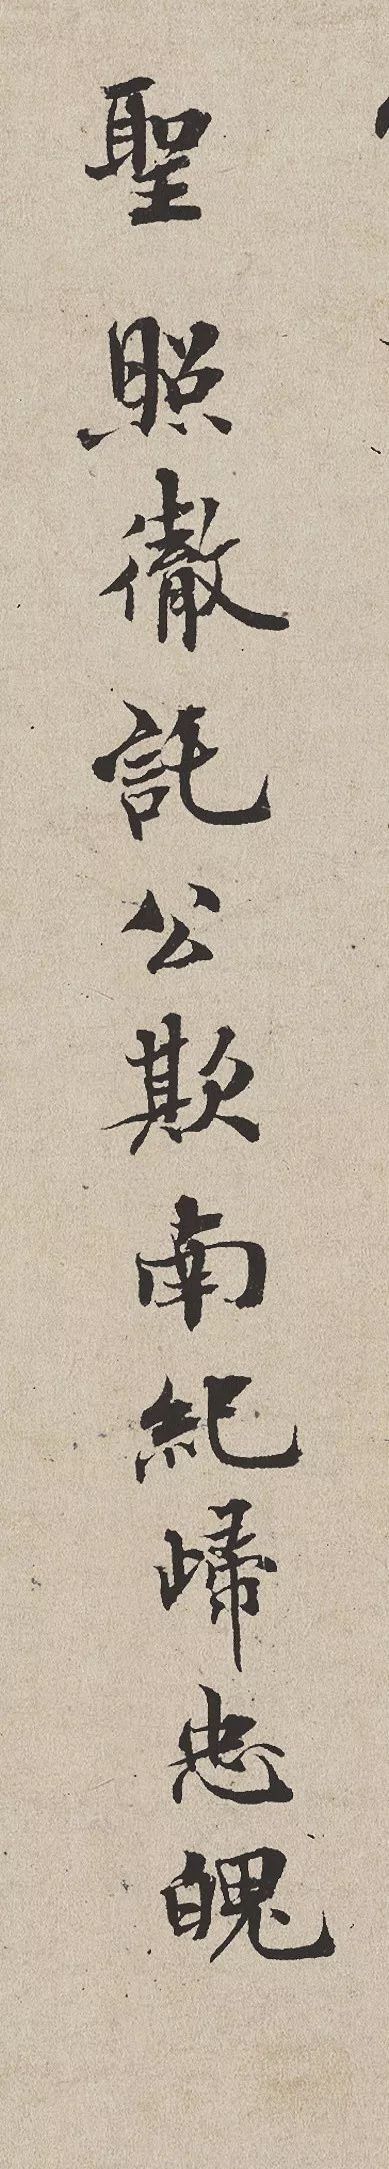 聖照徹託公欺南紀歸忠魄